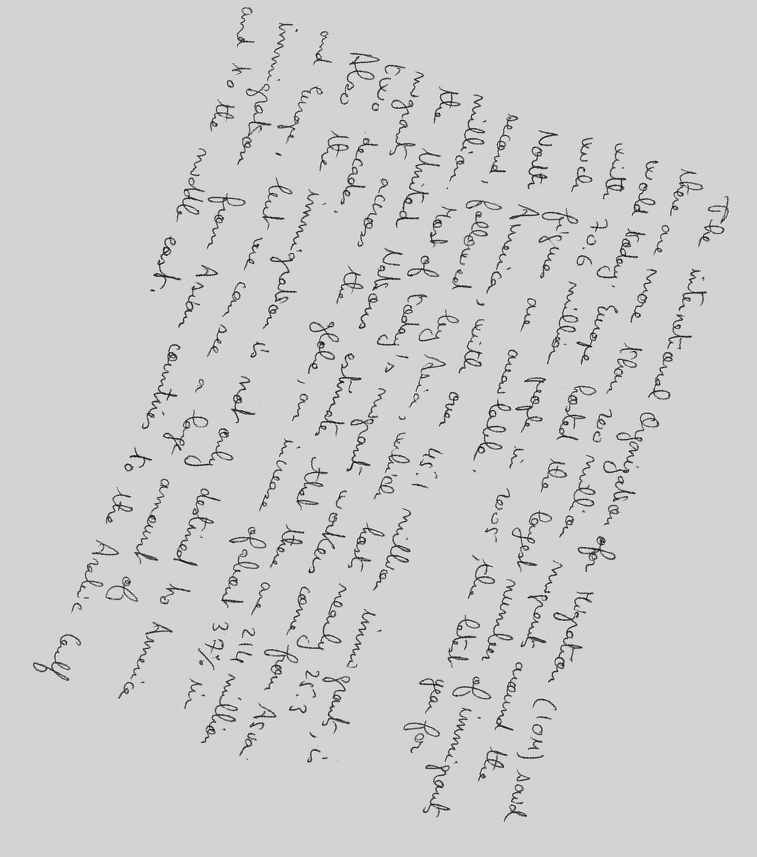 The internetional Organization for Migration (IOM) said
there are more than 200 million migrants around the
world today. Europe hosted the largest number of immigrants
with 70.6 million people in 2005, the latest year for
wich figures are available.
North America, with over 45.1 million immigrants, is
second, followed by Asia, which host nearly 25.3
million. Most of today's migrant workers come from Asia.
the United Nations estimate that there are 214 million
migrant across the globe, an increase of about 37% in
two decades.
Also the immigration is not only destined to America
and Europe, but we can see a large amount of
immigration from Asian countries to the Arabic Gulf
and to the middle east.